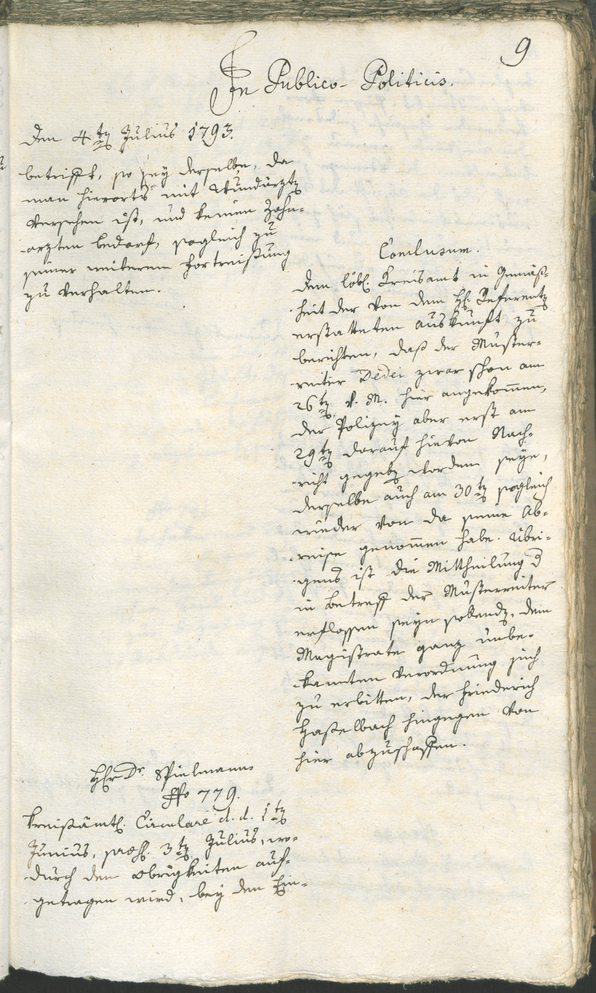 9
In Publico-Politicis.
Den 4ten Julius 1793.
betrifft, so sey derselbe, da
man hierorts mit Wundärzten
versehen ist, und keinen Zahn-
arzten bedarf, sogleich zu
seiner weiteren Fortreisung
zu verhalten.
Conclusum.
dem löbl. Kreisamt in Gemäß-
heit der von dem H. Referenten
erstatteten auskunft zu
berichten, daß der Muster-
reiter Dedei zwar schon am
26ten v. M. hier angekommen,
der Polizey aber erst am
29ten darauf hievon Nach-
richt gegeben worden seye,
derselbe auch am 30ten sogleich
wieder von da seine Ab-
reise genommen habe. Übri-
gens ist die Mittheilung d
in betreff der Musterreiter
erflossen seyn sollenden, dem
Magistrate ganz unbe-
kannten Verordnung sich
zu erbitten, der Friederich
Haselbach hingegen von
hier abzuschaffen.
Hr. Dr. Spielmann
No 779.
Kreisämtl. Circulare d. d. 1ten
Junius, praes. 3ten Julius, wo-
durch den Obrigkeiten auf-
getragen wird, bey den Ein-